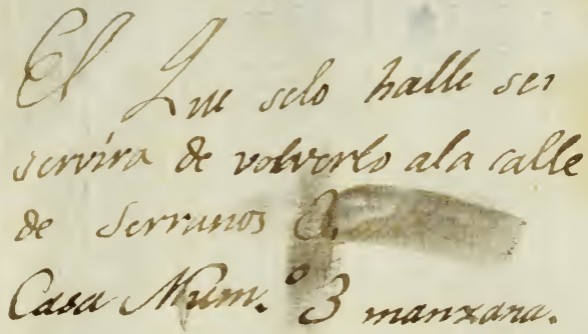 El Que selo halle ser
servira de volverlo ala calle
de Serranos
Casa Num.º 3 manzana.